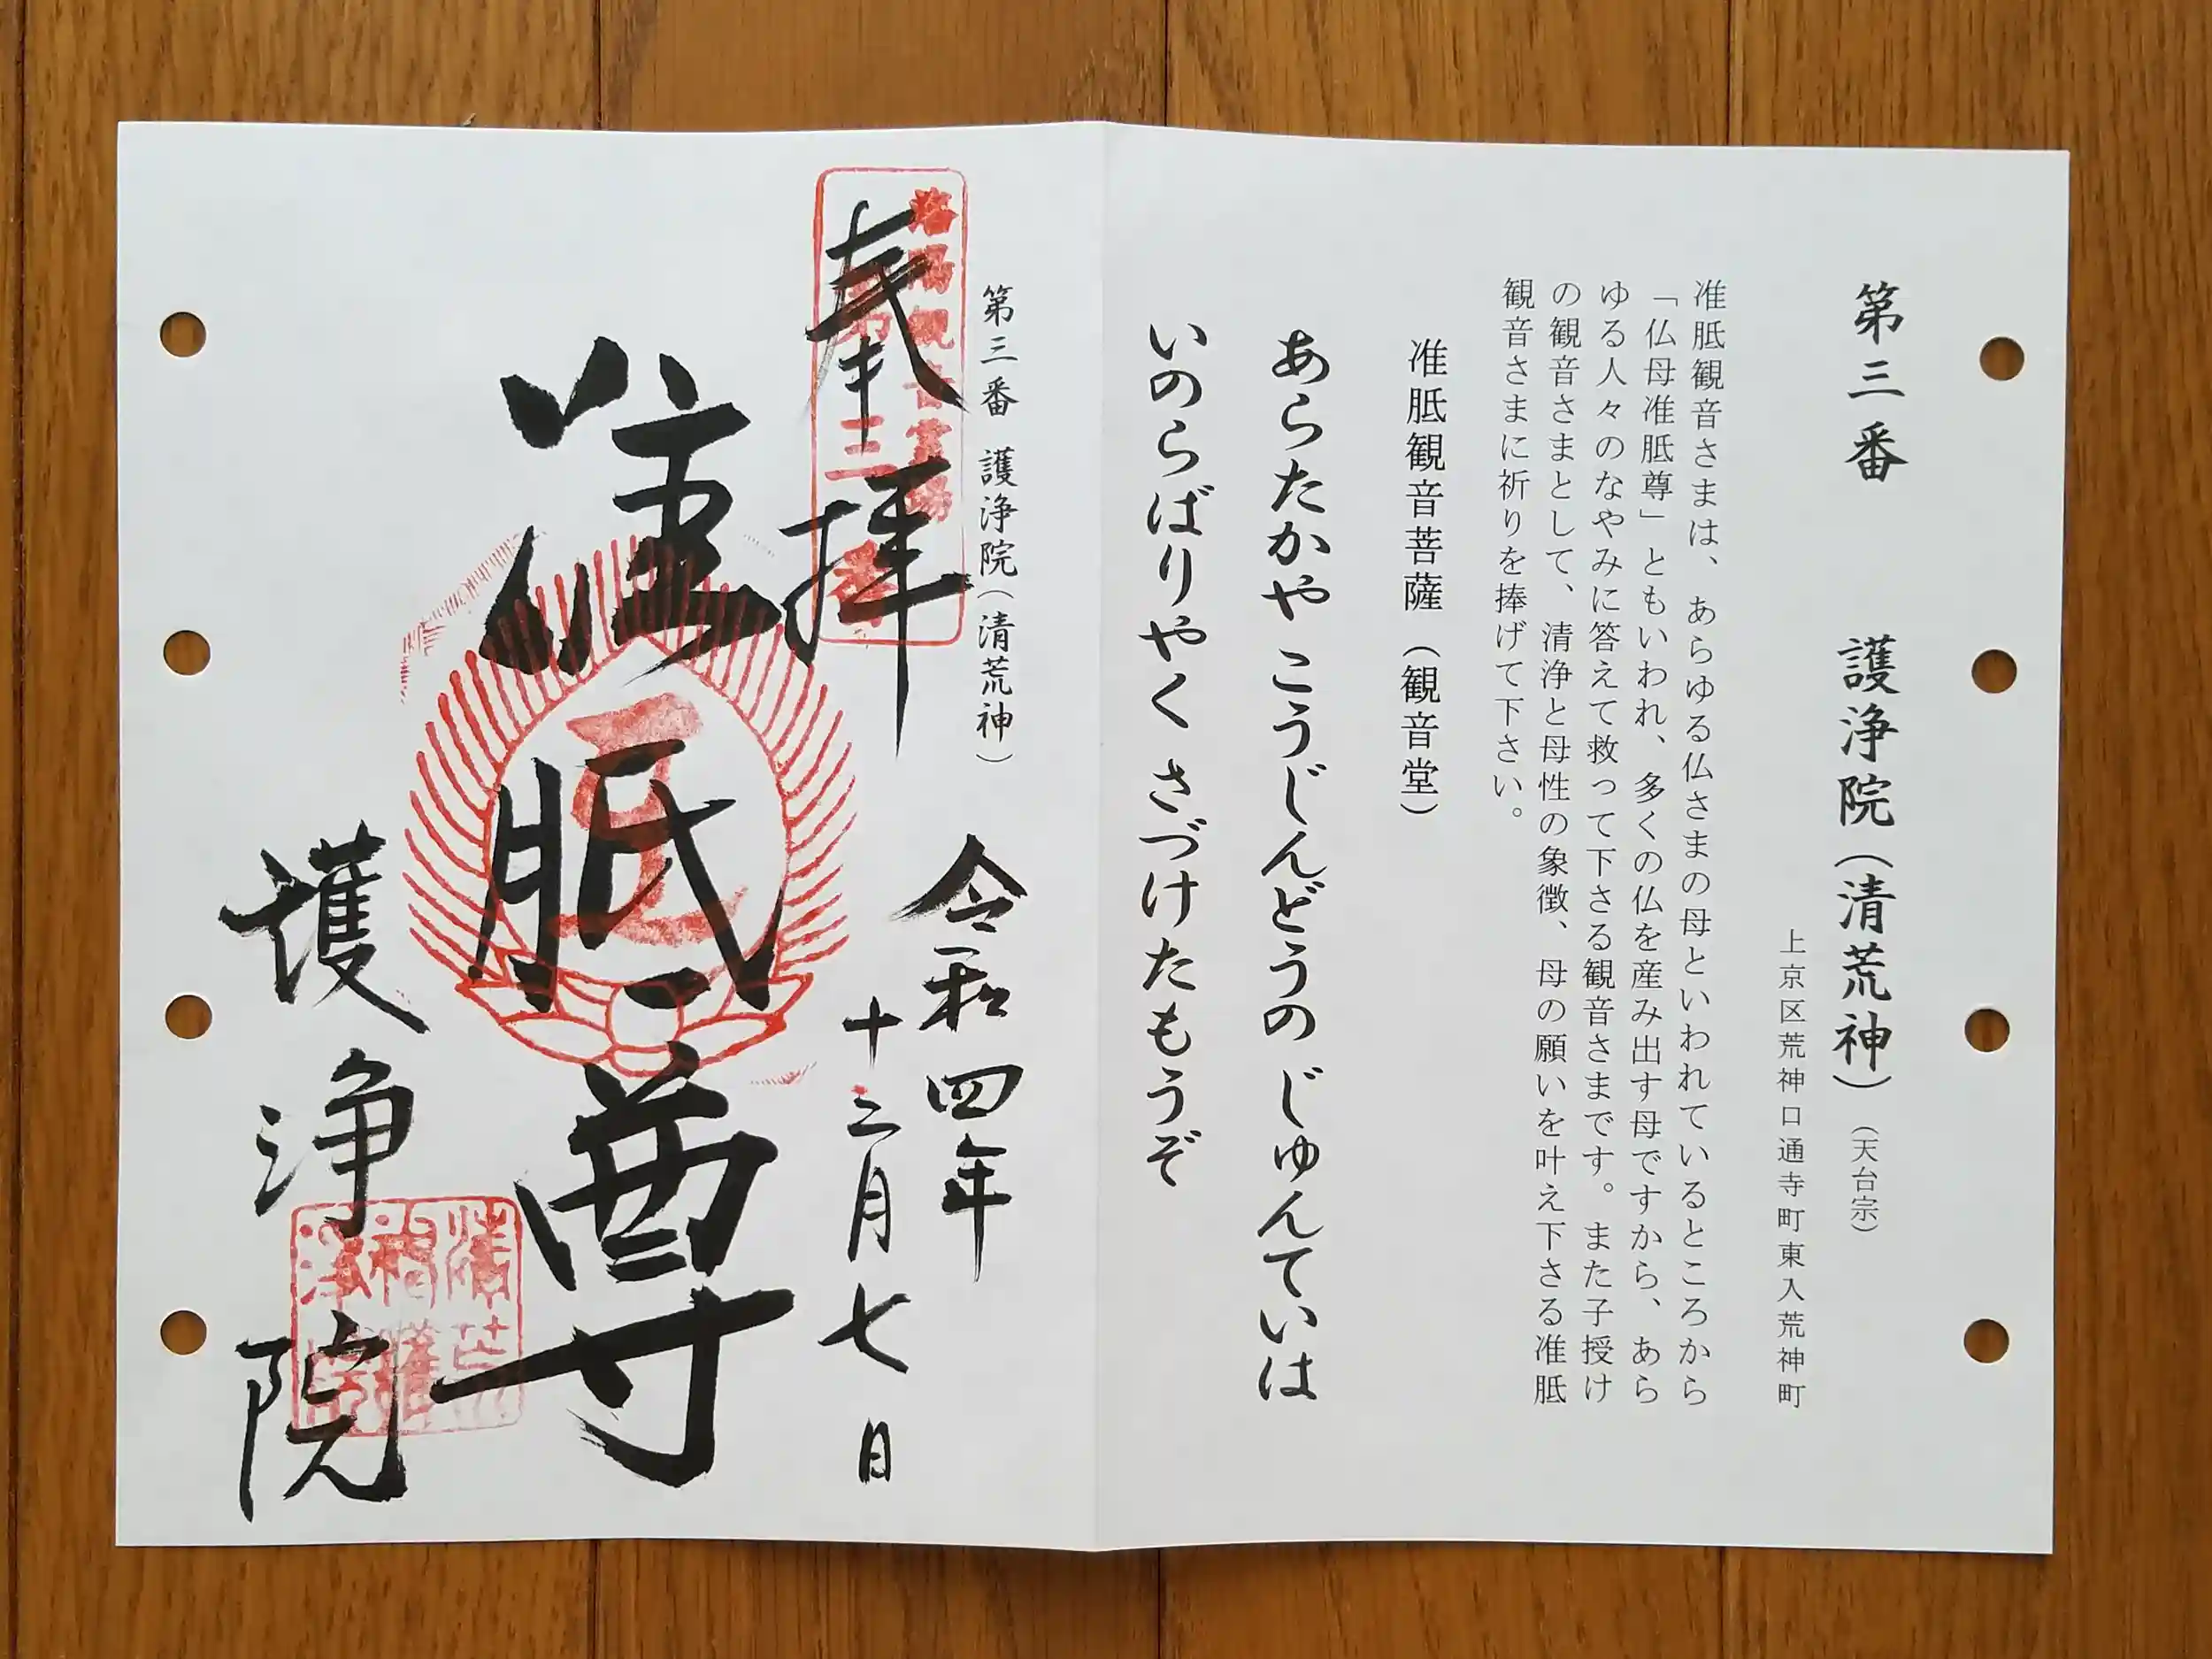 第三番 護浄院（清荒神）（天台宗）
上京区荒神口通寺町東入荒神町
准胝観音さまは、あらゆる仏さまの母といわれているところから
「仏母准胝尊」ともいわれ、多くの仏を産み出す母ですから、あら
ゆる人々のなやみに答えて救って下さる観音さまです。また子授け
の観音さまとして、清浄と母性の象徴、母の願いを叶え下さる准胝
観音さまに祈りを捧げて下さい。
准胝観音菩薩（観音堂）
あらたかや こうじんどうの じゅんていは
いのらばりやく さづけたもうぞ
第三番 護浄院（清荒神）
洛陽観音霊場
第三番
奉拝
令和四年
十二月七日
准胝尊
護浄院
清荒
神護
浄院